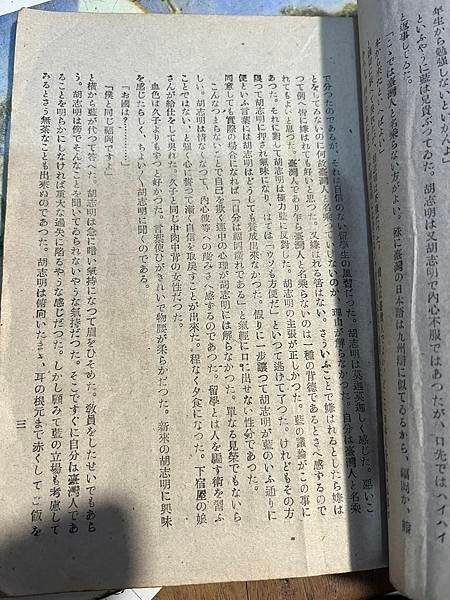 年生から勉強しないといかんよ」
と、いふやうに藍は兄貴ぶつてゐた。胡志明は又胡志明で内心不服ではあつたが、口先ではハイハイ
と返事してゐた。
「こつちでは臺灣人と名乗らない方がよい。殊に臺灣の日本語は九州辯に似てゐるから、福岡か、熊
で分つたのであるが、それは自信のない留學生の風習だつた。胡志明は莫迦莫迦しく感じた。惡いこ
とをしてゐないのに何故臺灣人と名乗つていけないのか、理由が解らなかつた。自分は臺灣人と名乗
つて例へ皆に嫌はれても好いと思つた。又嫌はれる筈はない。さういふことで嫌はれるとしたら嫌は
れてもよいと思つた。臺灣人であり乍ら臺灣人と名乗らないのは一種の背德であるとさへ感ずるので
あつた。それに對して胡志明は極力藍に反對した。胡志明の主張が正しかつた。藍の議論がこの事に
限つて胡志明に押され氣味になり、はては「ウソも方便だ」といつて逃げて了つた。けれどもその方
便といふ言葉には胡志明はどうしても賛成出來なかつた。假りに一步讓つて胡志明が藍のいふ通りに
同意しても實際の場合になれば「自分は福岡産れである」と氣輕に口に出せない性分であつた。
こんなつまらないことで自己を欺く連中の心理が胡志明には解らなかつた。單なる見榮でもないら
しい。胡志明は情なくなつて、内心彼等への蔑みさへ感ずるのであつた。留學とは人を騙す術を習ふ
ことではない、と強く心に誓つて漸く自信を取戾すことが出來た。程なく夕食になつた。下宿屋の娘
さんが給仕をして呉れた。久子と同じ中肉中背の女性だつた。
血色は久子よりもずつと好かつた。言葉使ひがきれいで物腰が柔らかだつた。新來の胡志明に興味
を感じたらしく、ちよい〱胡志明に聞くのである。
「お國は?…………」
「僕と同じ福岡ですよ」
と橫から藍が代つて答へた。胡志明は急に暗い氣持になつて眉をひそめた。敎員をしたせいでもあら
う。胡志明は傍でそんなことを聞いてゐられないやうな氣持だつた。そこですぐに自分は臺灣人であ
ることを明らかにしなければ重大な過失に陥るやうな感じだつた。しかし顧みて藍の立場も考慮して
みるとさう無茶なことも出來ぬのであつた。胡志明は俯向いたまゝ、耳の根元まで赤くしてご飯を
三